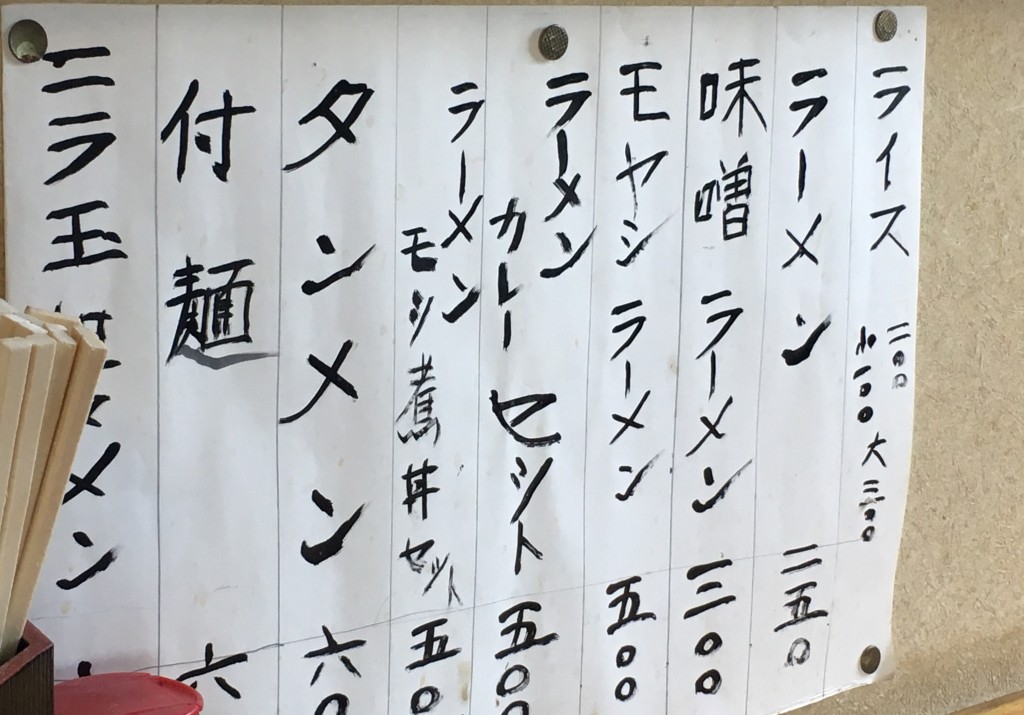 ライス 二〇〇
小一〇〇 大三〇〇
ラーメン 二五〇
味噌ラーメン 三〇〇
モヤシラーメン 五〇〇
ラーメン
カレーセット 五〇〇
ラーメン
モツ煮丼セット 五〇
タンメン 六〇
付麺 六
ニラ玉 メン